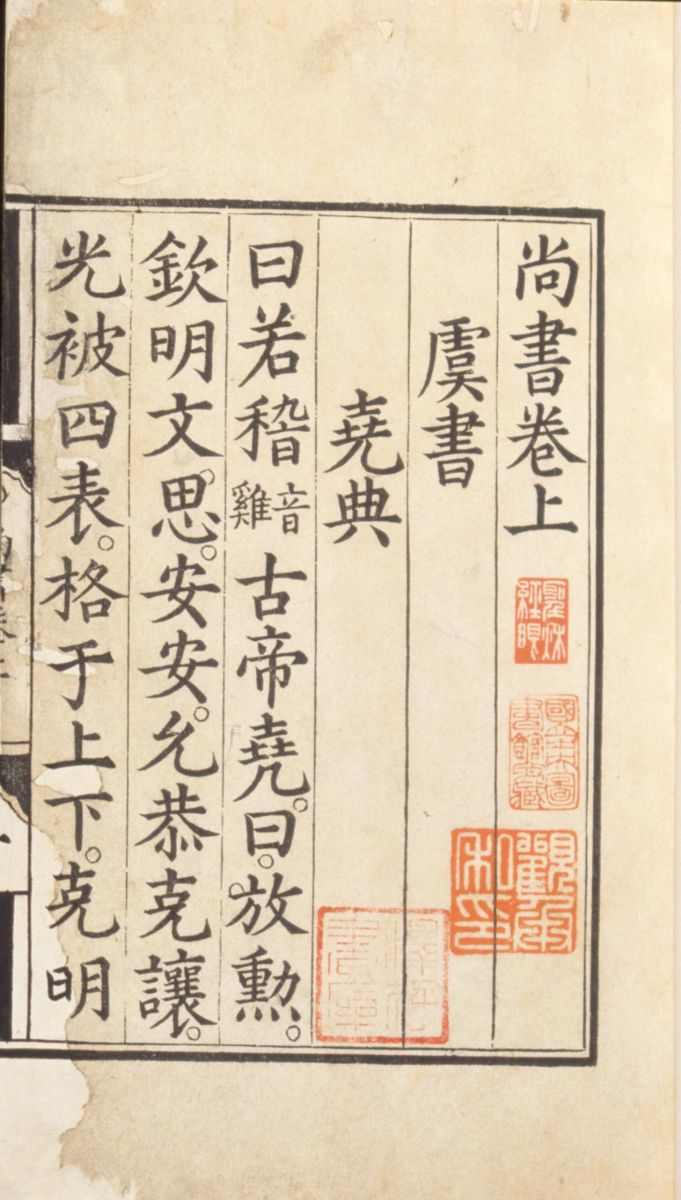 尚書卷上
虞書
堯典
曰若稽音雞古帝堯。曰。放勳。
欽明文思。安安。允恭克讓。
光被四表。格于上下。克明
國立中央圖書館藏